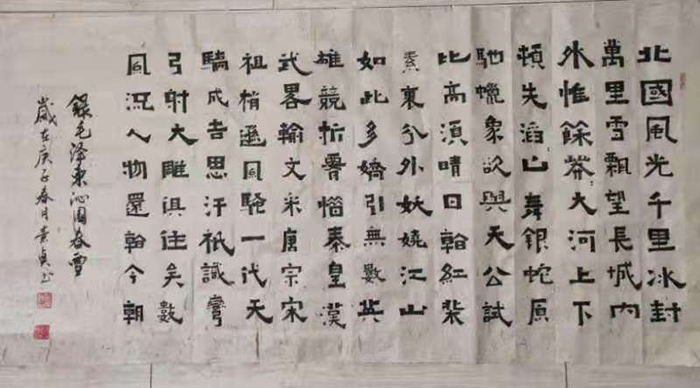 北國風光千里冰封
萬里雪飄望長城内
外惟餘莽大河上下
頓失滔山舞銀蛇原
馳蠟象欲與天公試
比高須晴日看紅裝
素裹分外妖嬈江山
如此多嬌引無數英
雄競折腰惜秦皇漢
武畧輸文采唐宗宋
祖稍遜風騷一代天
驕成吉思汗祇識彎
弓射大雕俱往矣數
風流人物還看今朝
錄毛澤東沁園春雪
歲在庚子春月